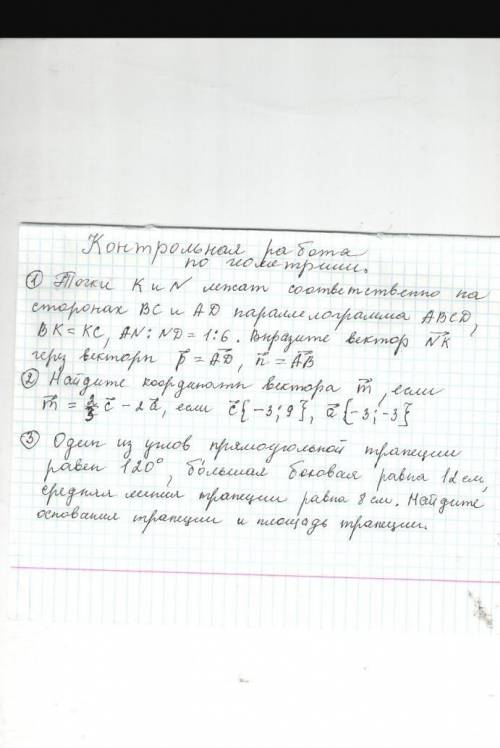 Контрольная работа
по геометрии.
① Точки K и N лежат соответственно на
сторонах BC и AD параллелограмма ABCD,
BK = KC, AN : ND = 1:6. Выразите вектор NK
через векторы p = AD, n = AB
② Найдите координаты вектора m, если
m = 2/3 c - 2a, если c{-3; 9}, a{-3; -3}
③ Один из углов прямоугольной трапеции
равен 120°, большая боковая равна 12 см,
средняя линия трапеции равна 8 см. Найдите
основания трапеции и площадь трапеции.